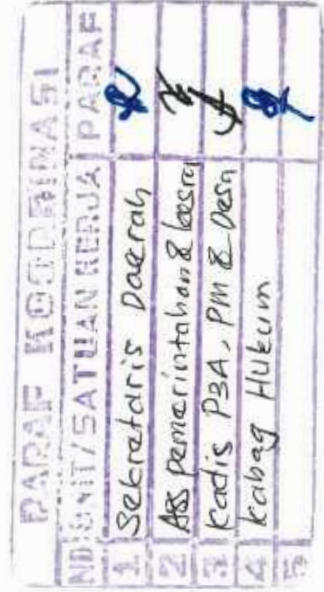 PARAF KOORDINASI
NO UNIT/SATUAN KERJA PARAF
1 Sekretaris Daerah
2 Ass pemerintahan & kesra
3 Kadis P3A, PM & Desa
4 Kabag Hukum
5